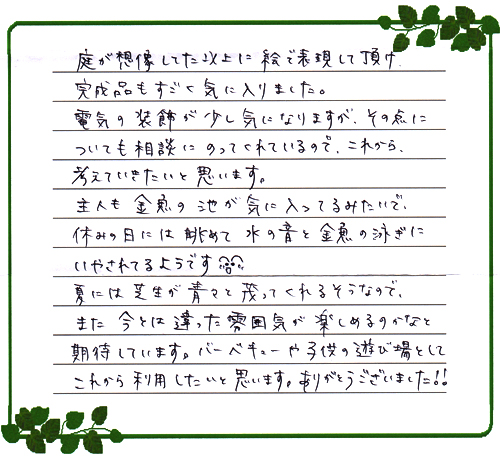 庭が想像してた以上に絵で表現して頂け
完成品もすごく気に入りました。
電気の装飾が少し気になりますが、その点に
ついても相談にのってくれているので、これから、
考えていきたいと思います。
主人も金魚の池が気に入ってるみたいで、
休みの日には眺めて水の音と金魚の泳ぎに
いやされてるようです
夏には芝生が青々と茂ってくれるそうなので、
また今とは違った雰囲気が楽しめるのかなと
期待しています。バーベキューや子供の遊び場として
これから利用したいと思います。ありがとうございました!!